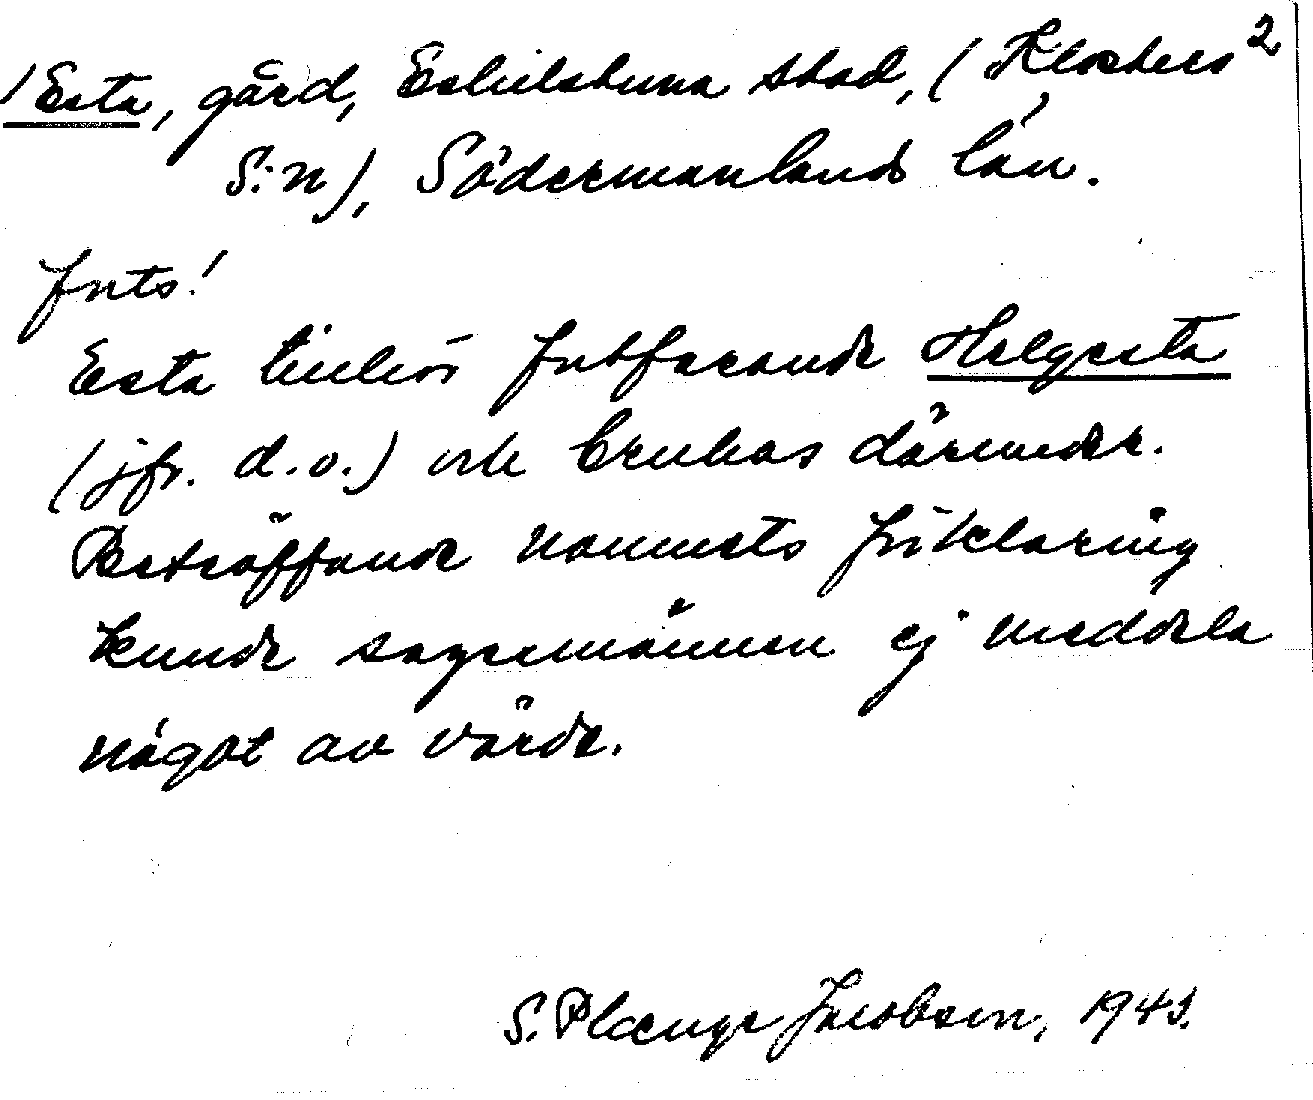 /Esta, gård, Eskilstuna stad, (Klosters 2
S:n), Södermanlands län.
forts!
Esta tillhör fortfarande Helgesta
(jfr. d.o.) och brukas därunder.
Beträffande namnets förklaring
kunde sagesmännen ej meddela
något av värde.
S. Plænge Jacobson, 1943.